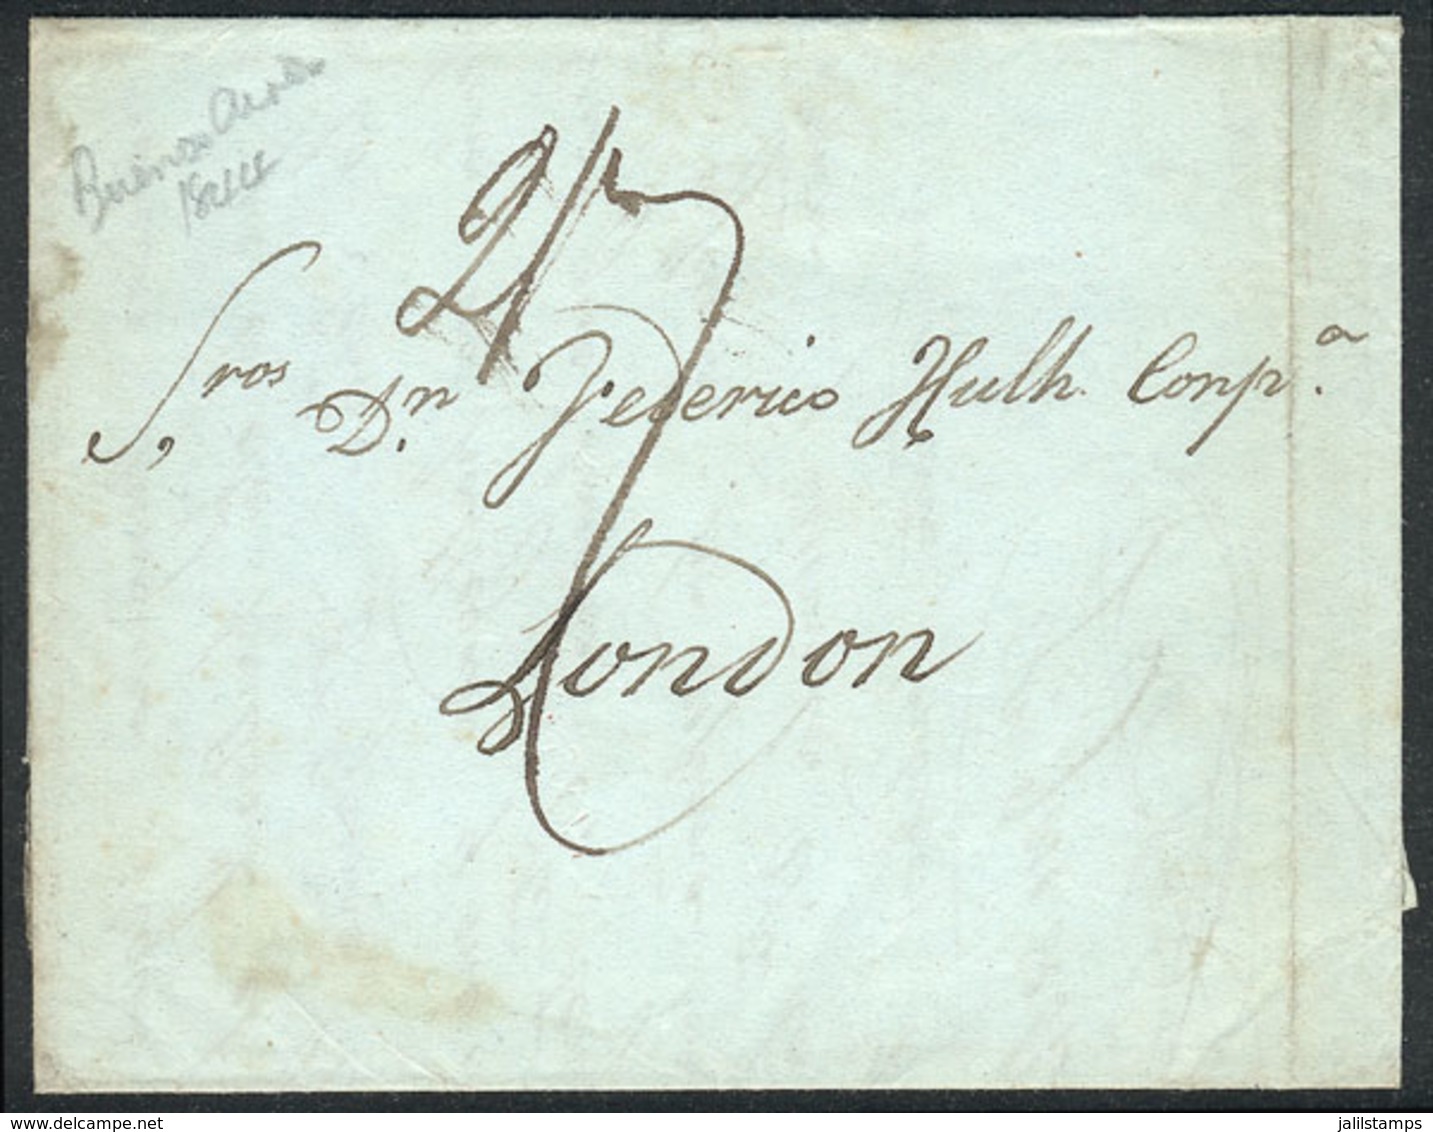 Buenos Aires
1844
2/7
Sros Dn Federico Hulh Conpa.
London
www.delcampe.net
jalilstamps